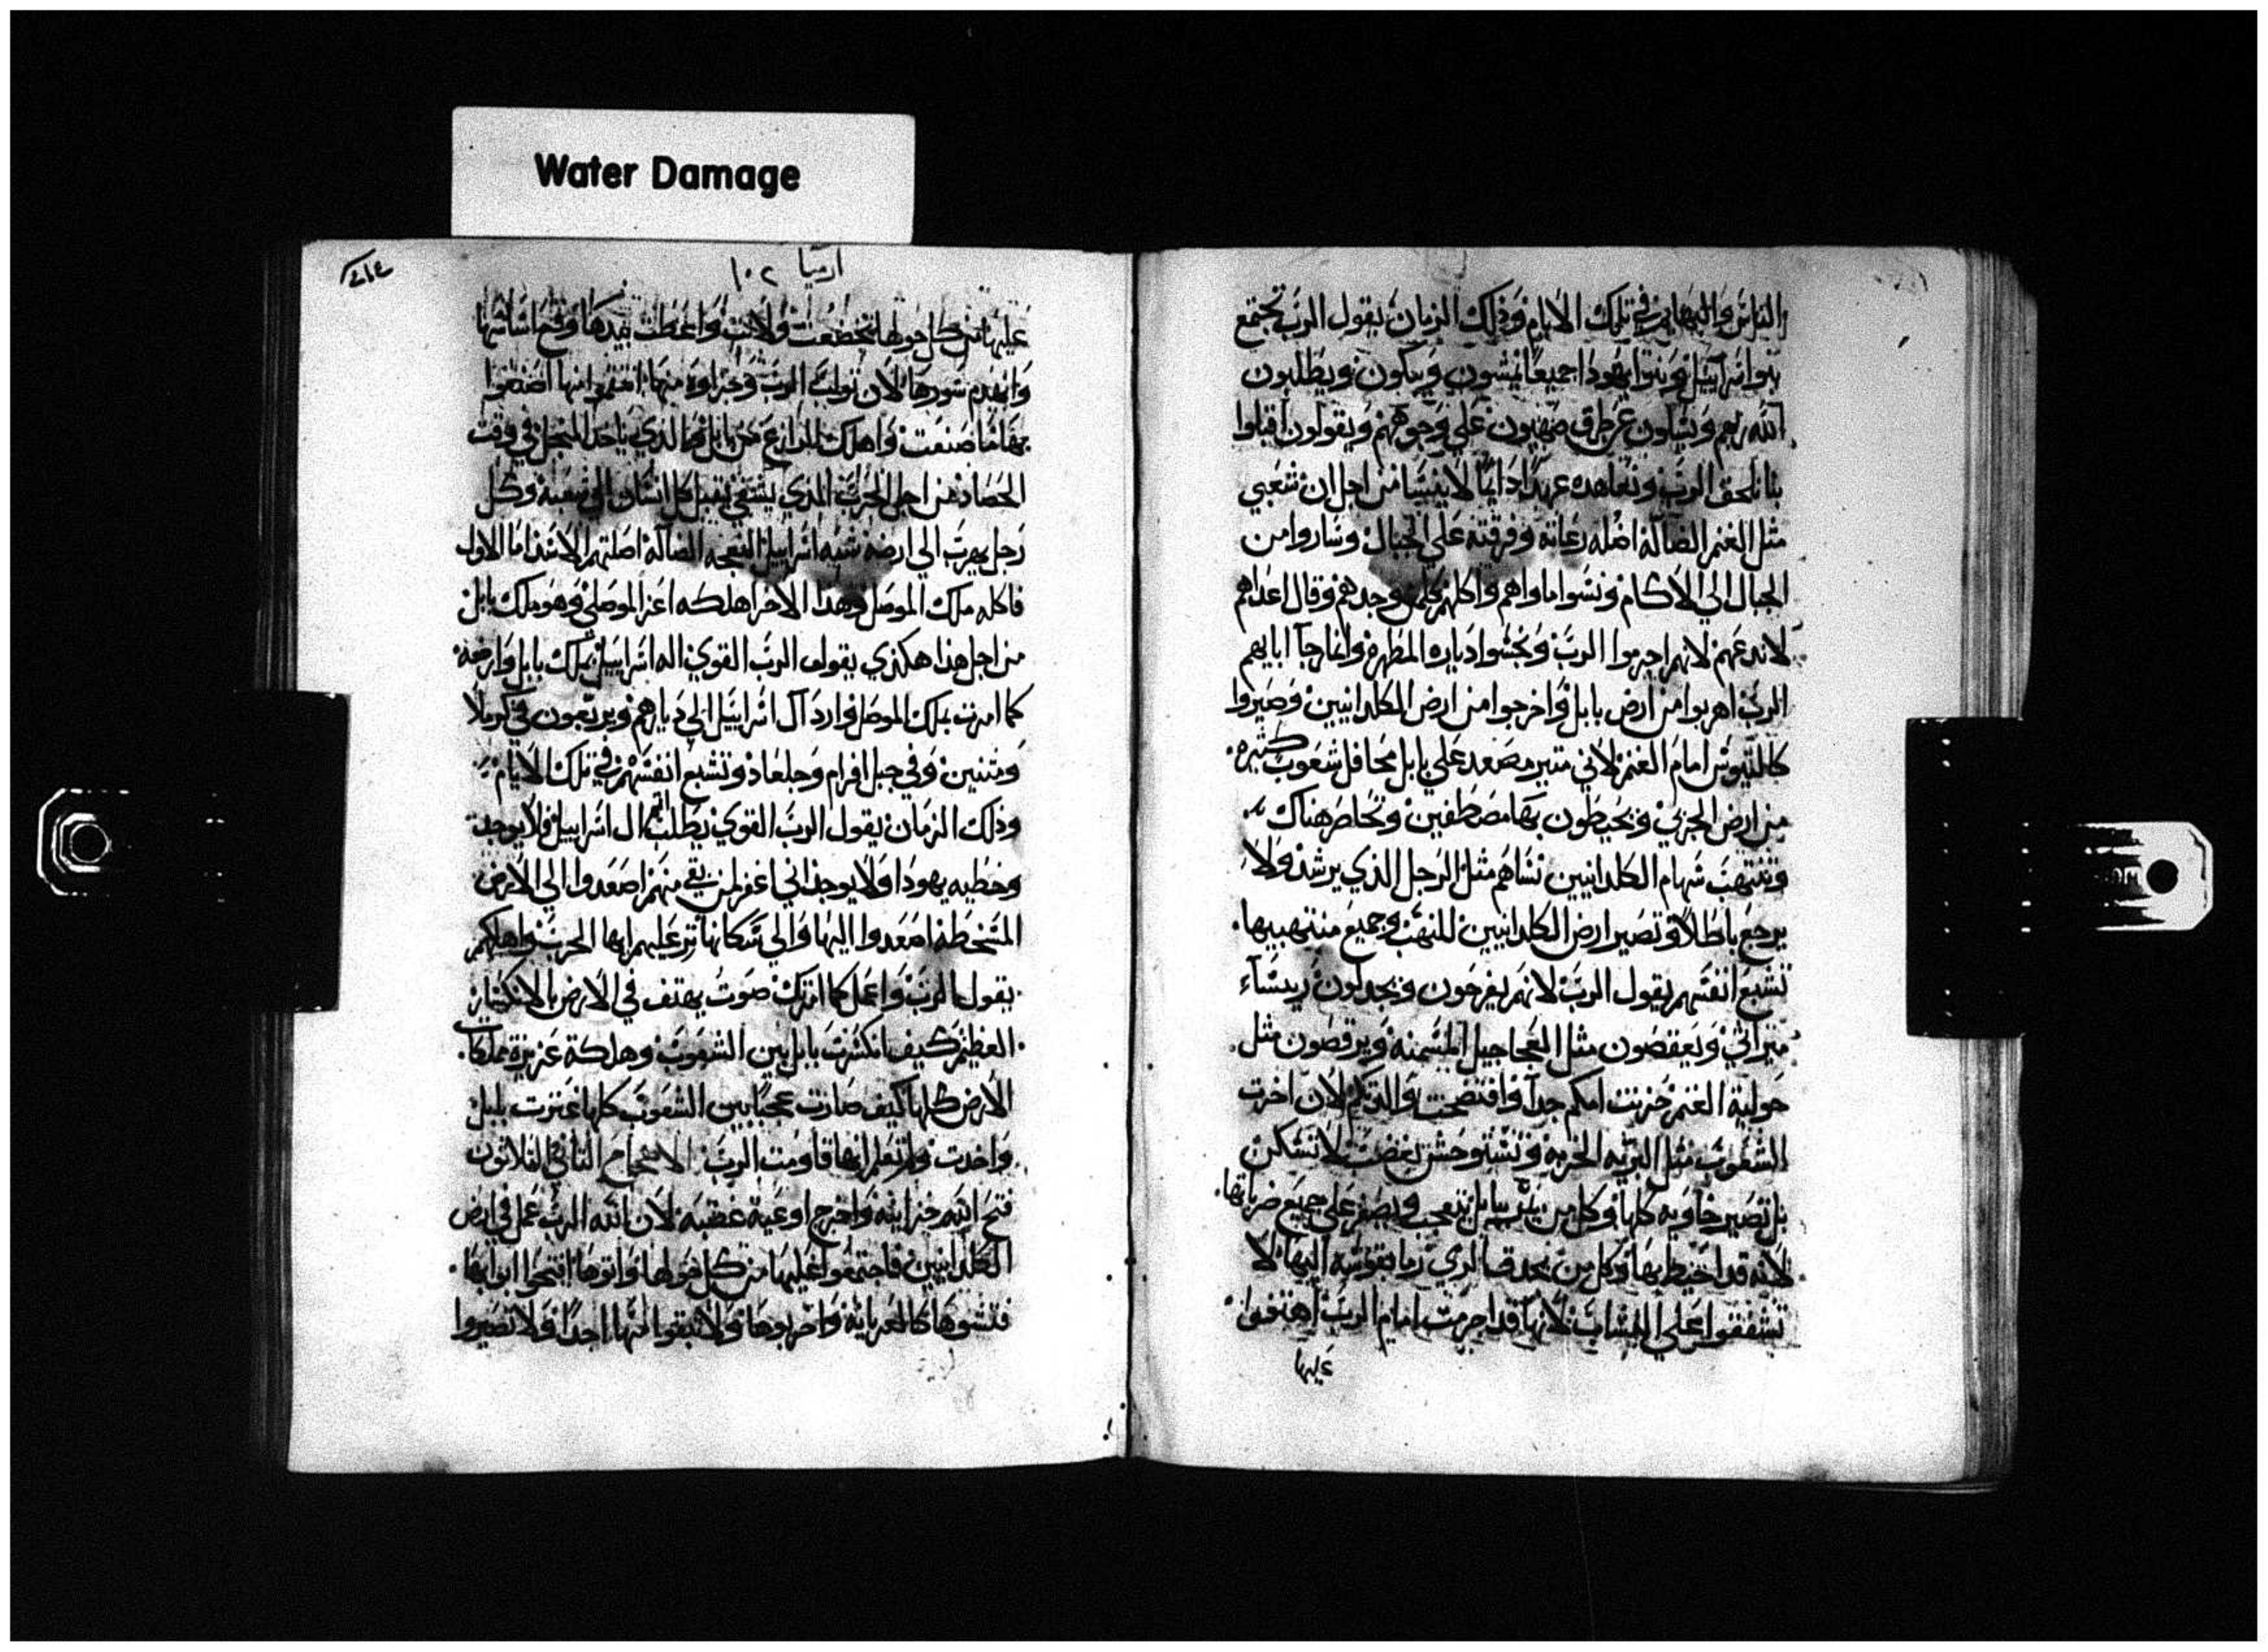 Water Damage
والناس والبهايم في تلك الايام وذلك الزمان يقول الرب تجتمع
بنوا اسراييل وبنوا يهودا جميعا يمشون ويبكون ويطلبون
الله ربهم ويسالون عن طرق صهيون على وجوههم ويقولون اقبلوا
بنا نلحق الرب ونعاهده عهدا دايما لا ينسا من اجل ان شعبي
مثل الغنم الضالة اضله رعاته وفرقته علي الجبال وساروا من
الجبال الي الاكام ونسوا ماواهم واكلهم كلمن وجدهم وقال اعداهم
لا ندعهم لانهم اجرموا الرب ونجسوا دياره المطهره وانما رجا ابايهم
الرب اهربوا من ارض بابل واخرجوا من ارض الكلدانيين وصيروا
كالتيوس امام الغنم لاني مثير مصعد علي بابل محافل شعوب كثيره
من ارض الجربي ويحيطون بها مصطفين وتحاصر هناك
وتنتهب سهام الكلدانيين نشاهم مثل الرجل الذي يرشد ولا
يرجع باطلا وتصير ارض الكلدانيين للنهب وجميع منتهبيها
تشبع انفسهم يقول الرب لانهم يفرحون ويجدلون
ميراثي ويعقصون مثل العجاجيل المسمنه ويرقصون مثل
حولية الغنم خزيت امكم جدا وافتضحت والدتكم لان اخرت
الشعوب مثل البريه الخربه وتستوحش بغضب لا تسكن
بل تصير خاويه كلها وكل من يمر ببابل يتعجب ويصفر علي جميع ضرباتها
لانه قد احيط بها وكل من نجد قصا لري رما بقوسه اليها لا
تشفقوا علي النشاب لانها قد اجرمت امام الرب اهتفوا
عليها
٤١٤
ارميا ١٠٢
عليها من كل حولها خضعت ولانت واعطت بيدها وقع اساسها
وانهدم سورها لان ثواب الرب وجزاوه منها انتقموا منها اصنعوا
بها ما صنعت واهلك الزارع من بابل والذي ياخذ المنجل في وقت
الحصاد من اجل الحرب الذي يشقي يقبل كل انسان الي شعبه وكل
رجل يهرب الي ارضه شبه اسراييل النعجه الضالة اضلتهم الاسد اما الاول
فاكله ملك الموصل وهذا الاخر اهلكه اعز الموصلي وهو ملك بابل
من اجل هذا هكذي يقول الرب القوي اله اسراييل بملك بابل وارضه
كما امرت بملك الموصل وارد آل اسراييل الي ديارهم ويرتعون في كرملا
ومتنين وفي جبل افرام وجلعاد وتشبع انفسهم في تلك الايام
وذلك الزمان يقول الرب القوي يطلب اثم ال اسراييل فلا يوجد
وخطيه يهودا ولا يوجد اني اغفر لمن بقي منهم اصعدوا الي الارض
المسخطه اصعدوا اليها والي سكانها عليهم ايها الحرب واهلكهم
يقول الرب واعمل كما امرتك صوت يهتف في الارض بالانكسار
العظيم كيف انكسرت بابل بين الشعوب وهلكة عزيزة مملكات
الارض كلها كيف صارت عجبا بين الشعوب كلها عثرت بابل
واخذت ولم تعلم انها قاومت الرب الاصحاح الثاني والثلاثون
فتح الله خزاينه واخرج اوعية غضبه لان الله الرب عمل في ارض
الكلدانيين فاجتمعوا عليها من كل حولها واتوها افتحوا ابوابها
فتشوها كالعريانه واخربوها ولا تبقوا منها احدا ولا تصيروا